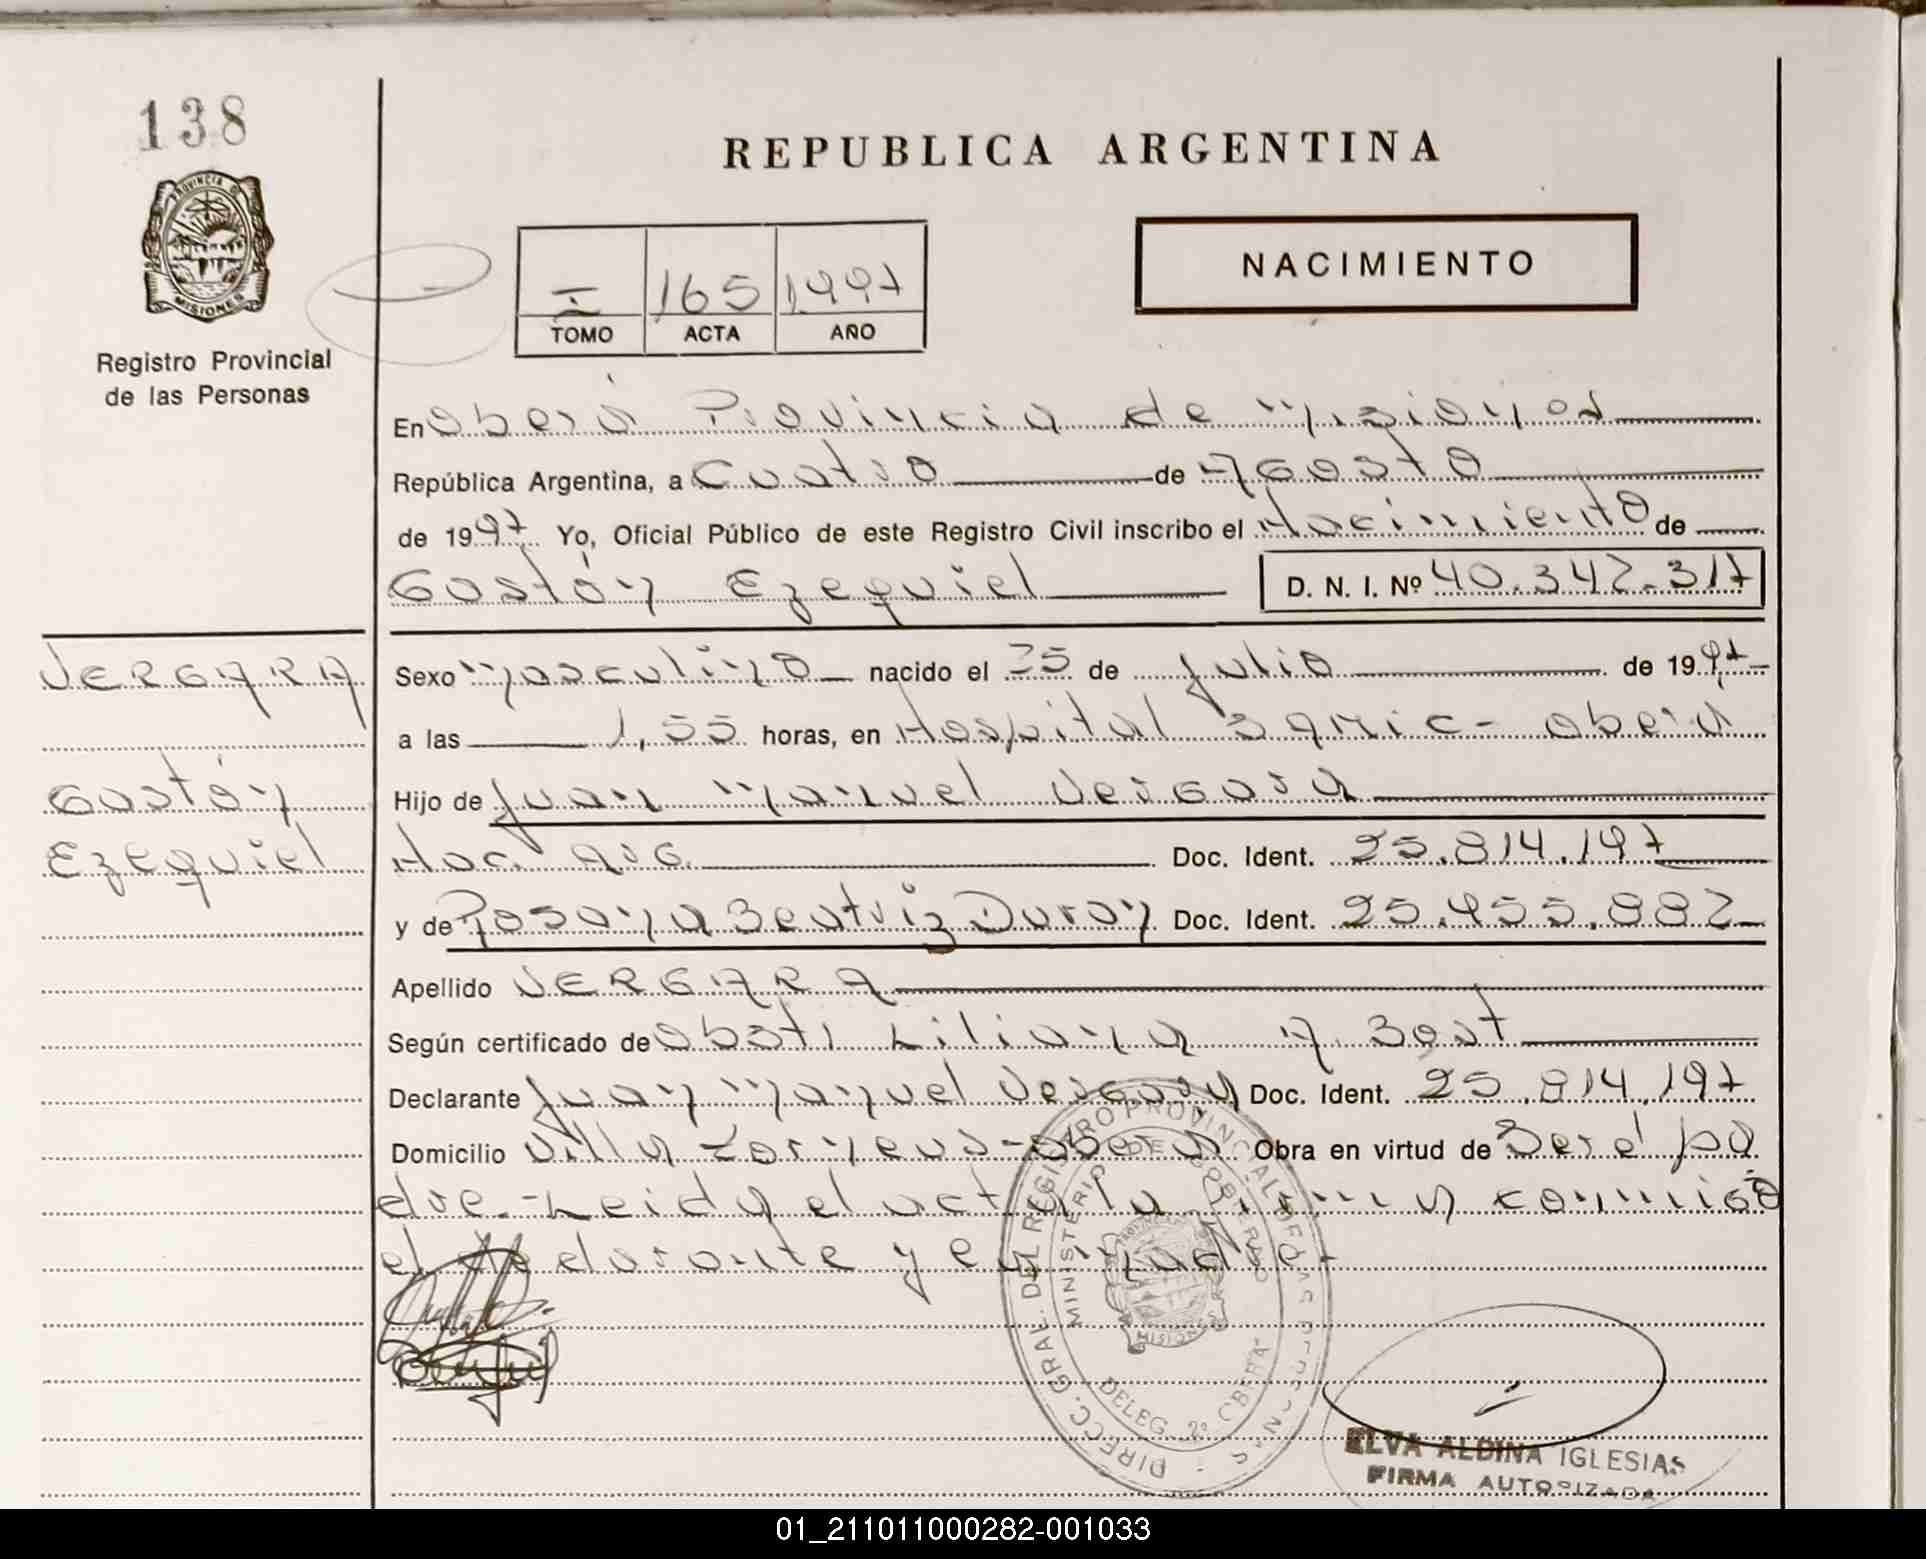 138
REPUBLICA ARGENTINA
PROVINCIA D
MISIONES
Registro Provincial
de las Personas
NACIMIENTO
I 165 1997
TOMO ACTA AÑO
En Oberá Provincia de Misiones
República Argentina, a Cuatro de Agosto
de 1997 Yo, Oficial Público de este Registro Civil inscribo el Nacimiento de
Gastón Ezequiel D. N. I. Nº 40.342.317
VERGARA
Gastón
Ezequiel
Sexo Masculino nacido el 25 de Julio de 1997
a las 1,55 horas, en Hospital Samic - Oberá
Hijo de Juan Manuel Vergara
Nac. Arg. Doc. Ident. 25.814.197
y de Rosana Beatriz Duran Doc. Ident. 25.455.882
Apellido VERGARA
Según certificado de Obst. Liliana A. Bast
Declarante Juan Manuel Vergara Doc. Ident. 25.814.197
Domicilio Villa - Oberá Obra en virtud de Ser el pa
dre.- Leida el acta la firma conmigo
el declarante y la madre.-
DIRECC. GRAL. DEL REGISTRO PROVINCIAL DE LAS PERSONAS
MINISTERIO DE GOBIERNO
MISIONES
DELEG. 2º OBERA
ELVA ALDINA IGLESIAS
FIRMA AUTORIZADA
01_211011000282-001033